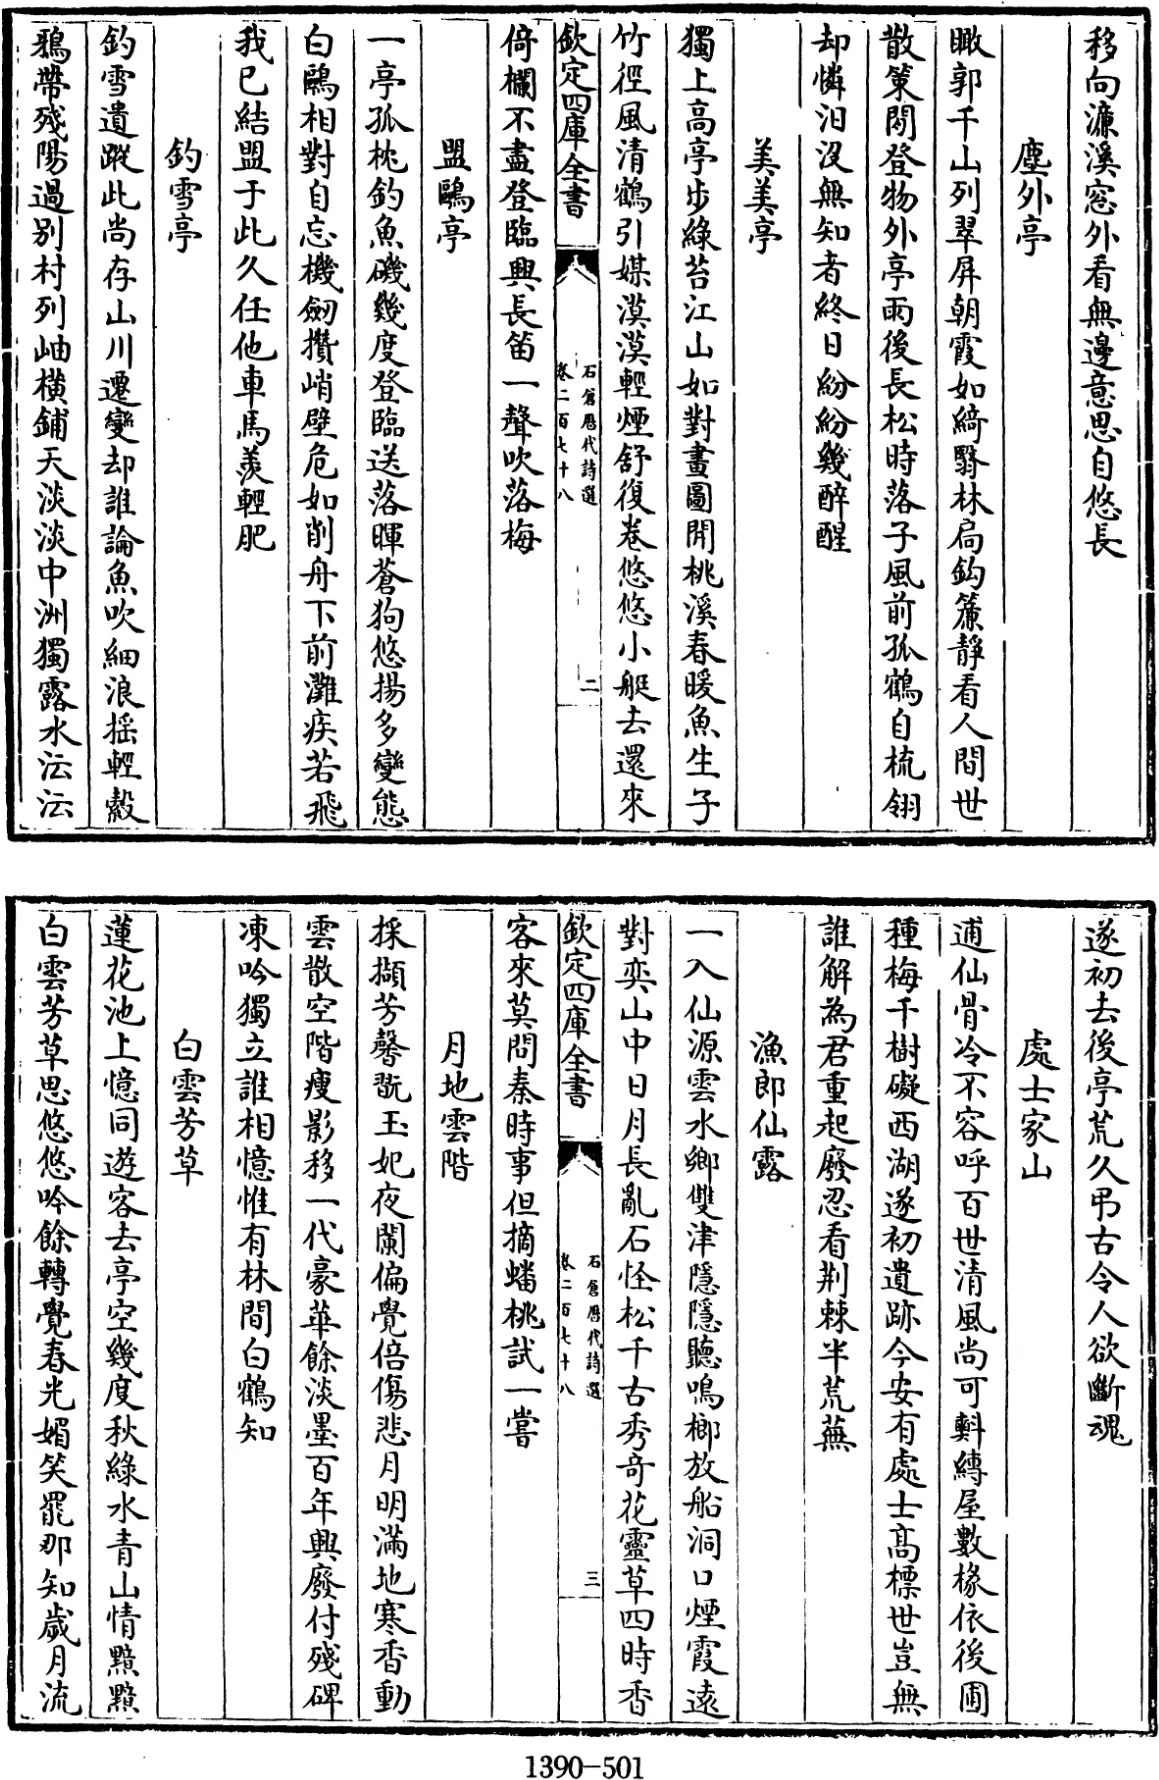 移向濂溪窓外看無邊意思自悠長
塵外亭
瞰郭千山列翠屏朝霞如綺翳林扃鈎簾靜看人間世
散策閒登物外亭雨後長松時落子風前孤鶴自梳翎
却憐汨沒無知者終日紛紛幾醉醒
美美亭
獨上高亭步綠苔江山如對畫圖開桃溪春暖魚生子
竹徑風清鶴引媒漠漠輕煙舒復卷悠悠小艇去還來
欽定四庫全書
石倉歷代詩選
卷二百七十八
二
倚欄不盡登臨興長笛一聲吹落梅
盟鷗亭
一亭孤枕釣魚磯幾度登臨送落暉蒼狗悠揚多變態
白鷗相對自忘機劒攢峭壁危如削舟下前灘疾若飛
我已結盟于此久任他車馬羨輕肥
釣雪亭
釣雪遺蹤此尚存山川遷變却誰論魚吹細浪揺輕縠
鴉帶殘陽過別村列岫橫鋪天淡淡中洲獨露水沄沄
遂初去後亭荒久弔古令人欲斷魂
處士家山
逋仙骨冷不容呼百世清風尚可㪺縛屋數椽依後圃
種梅千樹礙西湖遂初遺跡今安有處士髙標世豈無
誰解為君重起廢忍看荆棘半荒蕪
漁郎仙露
一入仙源雲水鄉雙津隱隱聽鳴榔放船洞口煙霞遠
對奕山中日月長亂石怪松千古秀奇花靈草四時香
欽定四庫全書
石倉歷代詩選
卷二百七十八
三
客來莫問秦時事但摘蟠桃試一嘗
月地雲階
採擷芳馨翫玉妃夜闌偏覺倍傷悲月明滿地寒香動
雲散空階瘦影移一代豪華餘淡墨百年興廢付殘碑
凍吟獨立誰相憶惟有林間白鶴知
白雲芳草
蓮花池上憶同遊客去亭空幾度秋綠水青山情黯黯
白雲芳草思悠悠吟餘轉覺春光媚笑罷那知歲月流
1390-501